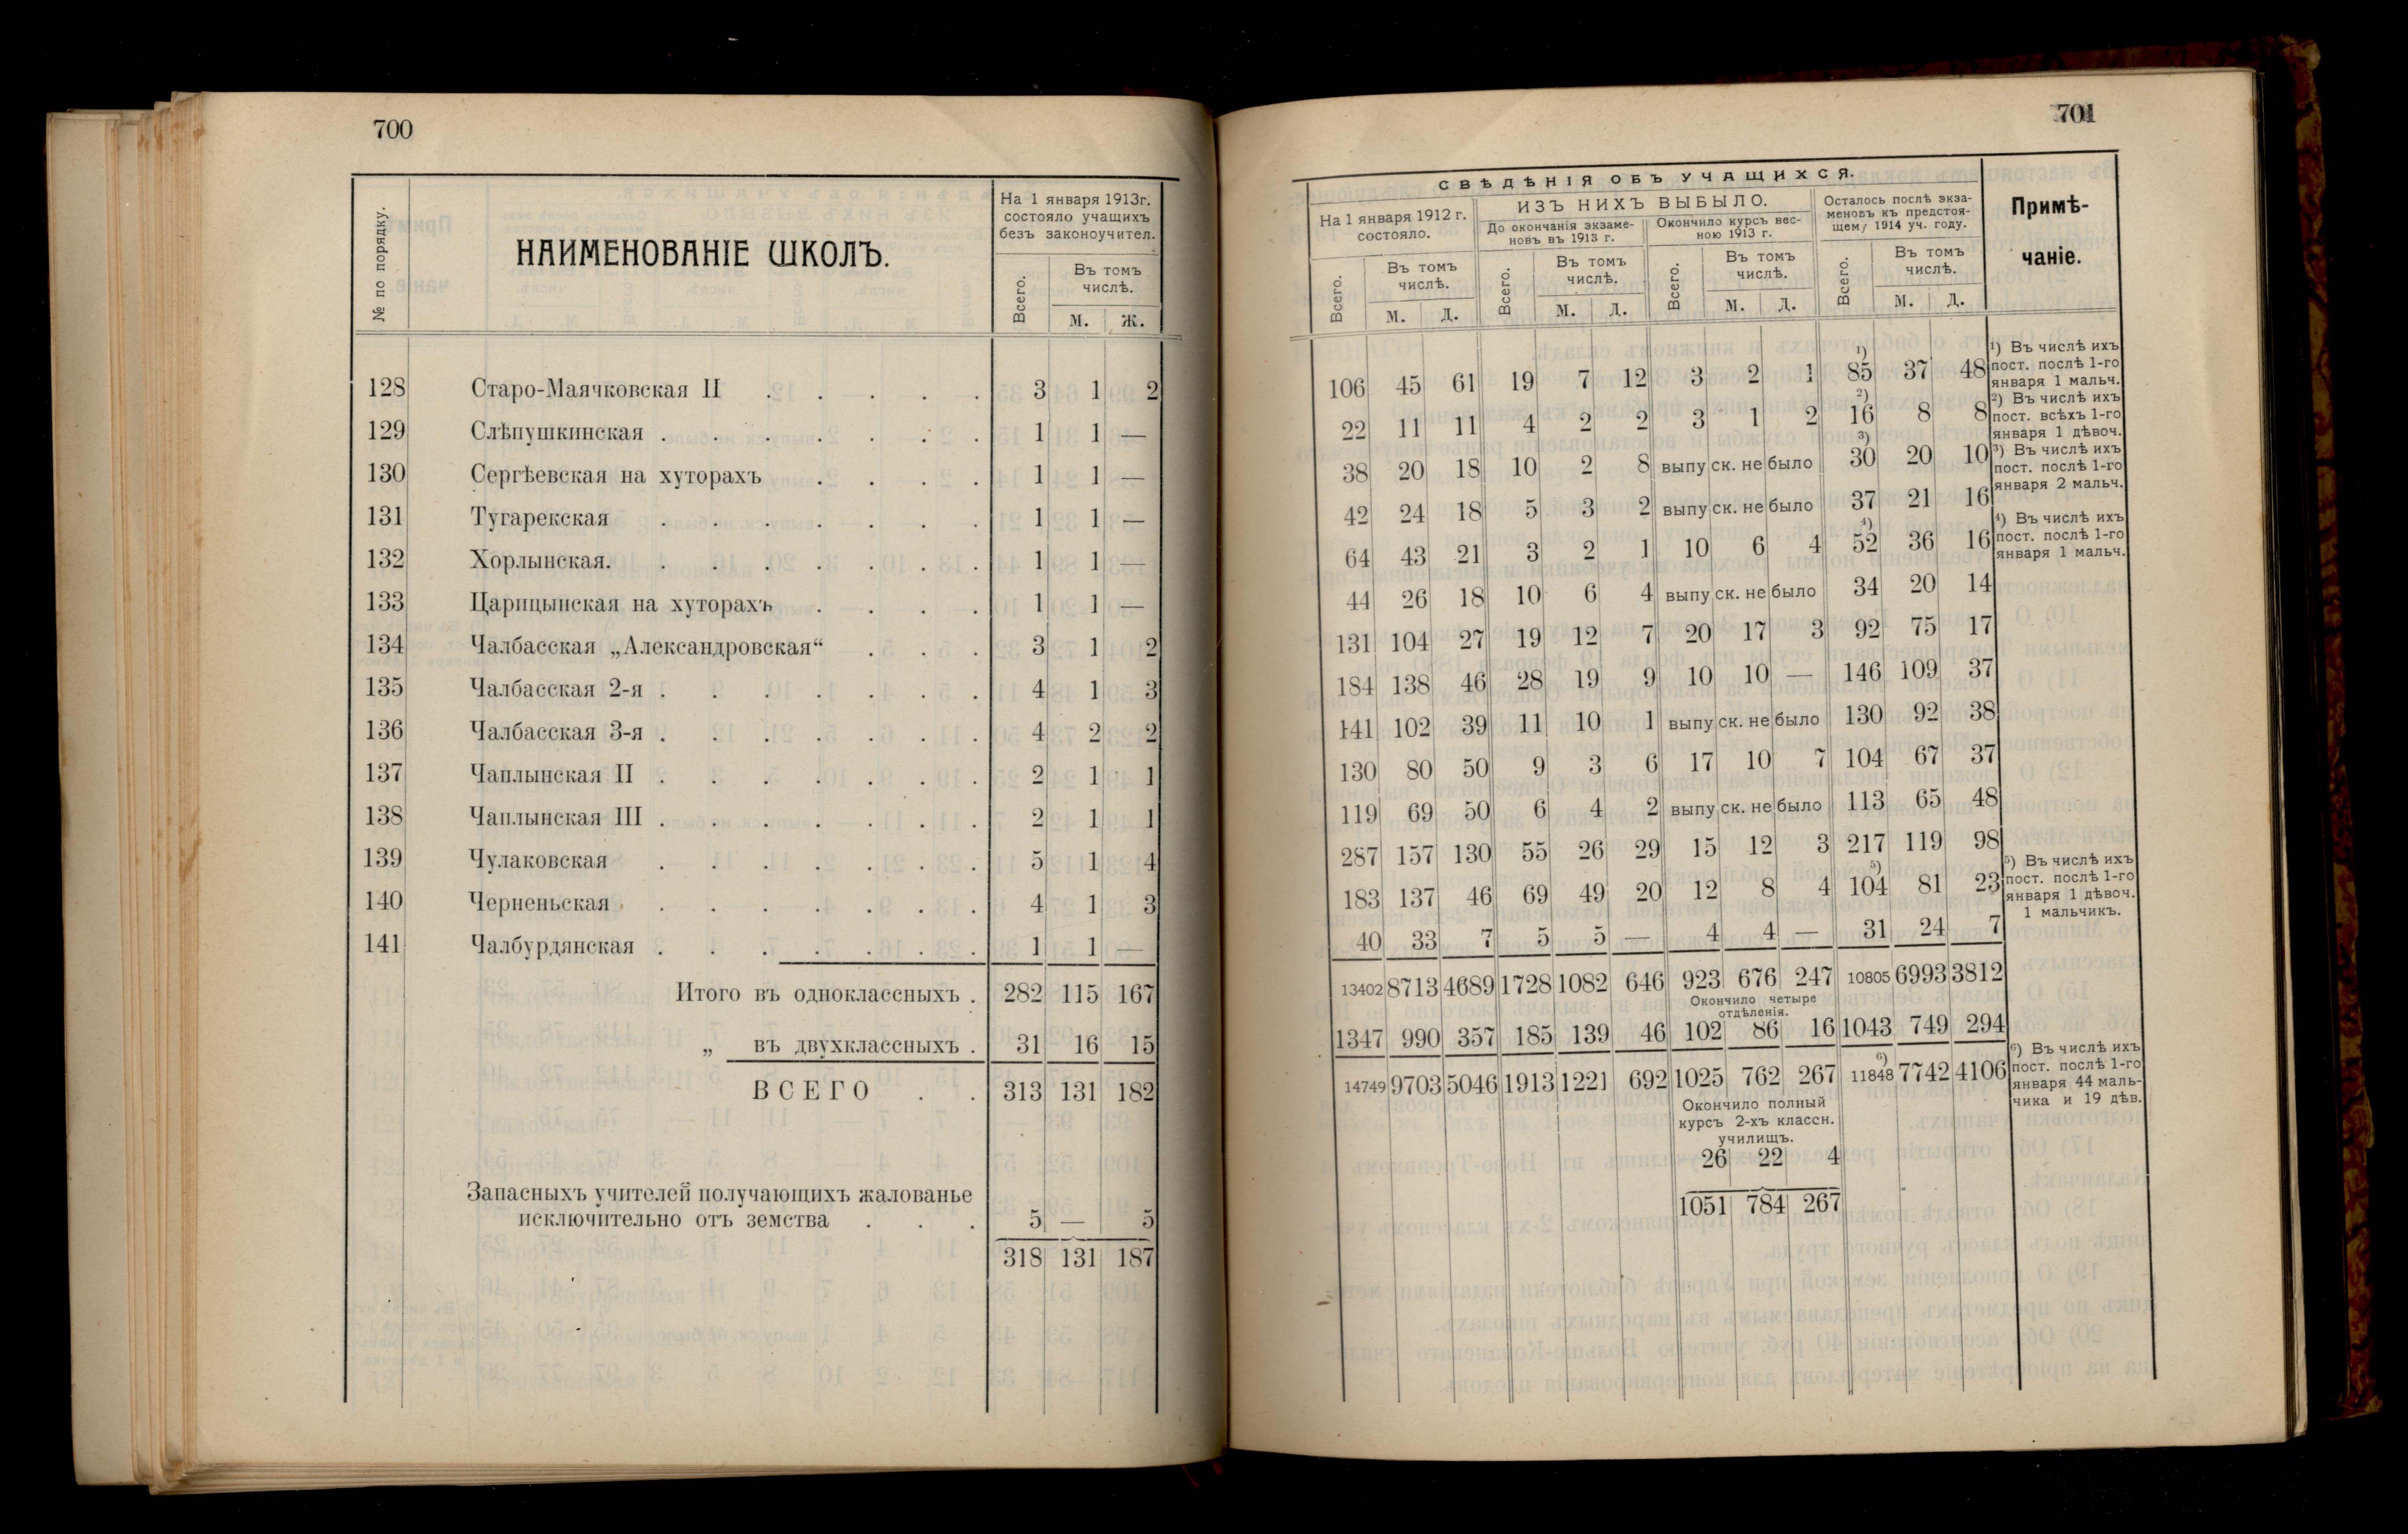 700
№ по порядку.
НАИМЕНОВАНІЕ ШКОЛЪ.
На 1 января 1913г.
состояло учащихъ
безъ законоучител.
Всего.
Въ томъ
числѣ.
М. Ж.
128 Старо-Маячковская II . . . . . 3 1 2
129 Слѣпушкинская . . . . . . . 1 1 —
130 Сергѣевская на хуторахъ . . . . 1 1 —
131 Тугарекская . . . . . . . 1 1 —
132 Хорлынская. . . . . . . . 1 1 —
133 Царицынская на хуторахъ . . . . 1 1 —
134 Чалбасская „Александровская“ . . . 3 1 2
135 Чалбасская 2-я . . . . . . . 4 1 3
136 Чалбасская 3-я . . . . . . . 4 2 2
137 Чаплынская II . . . . . . . 2 1 1
138 Чаплынская III . . . . . . . 2 1 1
139 Чулаковская . . . . . . . 5 1 4
140 Черненьская . . . . . . . 4 1 3
141 Чалбурдянская . . . . . . . 1 1 —
Итого въ одноклассныхъ . 282 115 167
„ въ двухклассныхъ . 31 16 15
ВСЕГО . . 313 131 182
Запасныхъ учителей получающихъ жалованье
исключительно отъ земства . . . 5 — 5
318 131 187
701
СВѢДѢНІЯ ОБЪ УЧАЩИХСЯ.
На 1 января 1912 г.
состояло.
ИЗЪ НИХЪ ВЫБЫЛО.
До окончанія экзаме-
новъ въ 1913 г.
Окончило курсъ вес-
ною 1913 г.
Осталось послѣ экза-
меновъ къ предстоя-
щему 1914 уч. году.
Примѣ-
чаніе.
Всего.
Въ томъ
числѣ.
М. Д.
Всего.
Въ томъ
числѣ.
М. Д.
Всего.
Въ томъ
числѣ.
М. Д.
Всего.
Въ томъ
числѣ.
М. Д.
106 45 61 19 7 12 3 2 1 ¹) 85 37 48
22 11 11 4 2 2 3 1 2 ²) 16 8 8
38 20 18 10 2 8 выпуск. не было ³) 30 20 10
42 24 18 5 3 2 выпуск. не было 37 21 16
64 43 21 3 2 1 10 6 4 ⁴) 52 36 16
44 26 18 10 6 4 выпуск. не было 34 20 14
131 104 27 19 12 7 20 17 3 92 75 17
184 138 46 28 19 9 10 10 — 146 109 37
141 102 39 11 10 1 выпуск. не было 130 92 38
130 80 50 9 3 6 17 10 7 104 67 37
119 69 50 6 4 2 выпуск. не было 113 65 48
287 157 130 55 26 29 15 12 3 217 119 98
183 137 46 69 49 20 12 8 4 ⁵) 104 81 23
40 33 7 5 5 — 4 4 — 31 24 7
13402 8713 4689 1728 1082 646 923 676 247 10805 6993 3812
Окончило четыре
отдѣленія.
1347 990 357 185 139 46 102 86 16 1043 749 294
14749 9703 5046 1913 1221 692 1025 762 267 ⁶) 11848 7742 4106
Окончило полный
курсъ 2-хъ классн.
училищъ.
26 22 4
1051 784 267
¹) Въ числѣ ихъ
пост. послѣ 1-го
января 1 мальч.
²) Въ числѣ ихъ
пост. всѣхъ 1-го
января 1 дѣвоч.
³) Въ числѣ ихъ
пост. послѣ 1-го
января 2 мальч.
⁴) Въ числѣ ихъ
пост. послѣ 1-го
января 1 мальч.
⁵) Въ числѣ ихъ
пост. послѣ 1-го
января 1 дѣвоч.
1 мальчикъ.
⁶) Въ числѣ ихъ
пост. послѣ 1-го
января 44 маль-
чика и 19 дѣв.